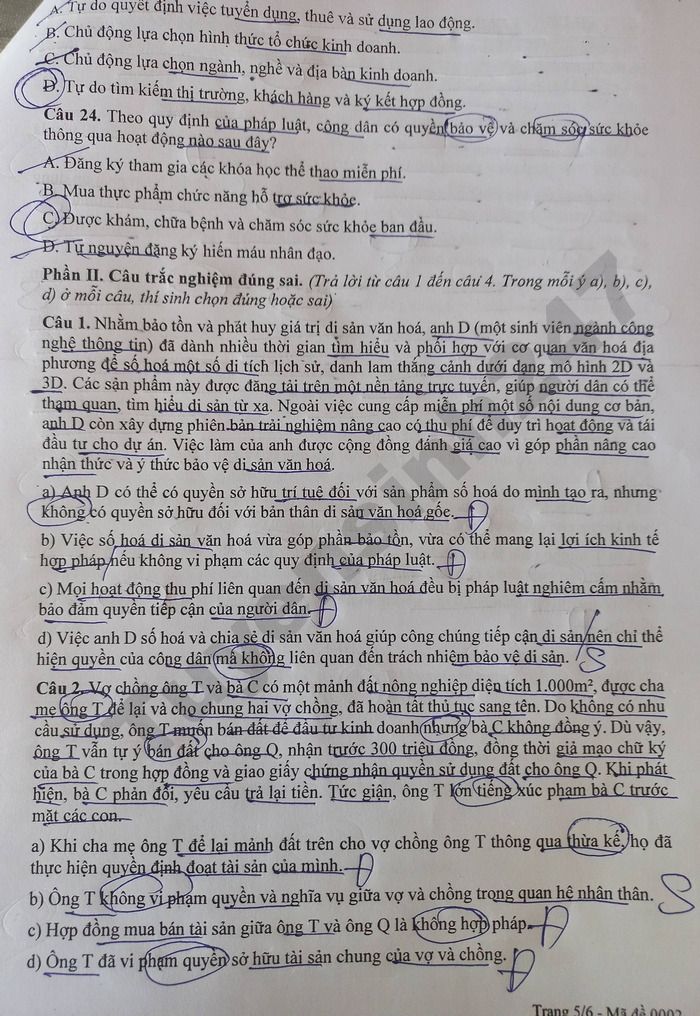 A. Tự do quyết định việc tuyển dụng, thuê và sử dụng lao động.
B. Chủ động lựa chọn hình thức tổ chức kinh doanh.
C. Chủ động lựa chọn ngành, nghề và địa bàn kinh doanh.
D. Tự do tìm kiếm thị trường, khách hàng và ký kết hợp đồng.
Câu 24. Theo quy định của pháp luật, công dân có quyền bảo vệ và chăm sóc sức khỏe
thông qua hoạt động nào sau đây?
A. Đăng ký tham gia các khóa học thể thao miễn phí.
B. Mua thực phẩm chức năng hỗ trợ sức khỏe.
C. Được khám, chữa bệnh và chăm sóc sức khỏe ban đầu.
D. Tự nguyện đăng ký hiến máu nhân đạo.
Phần II. Câu trắc nghiệm đúng sai. (Trả lời từ câu 1 đến câu 4. Trong mỗi ý a), b), c),
d) ở mỗi câu, thí sinh chọn đúng hoặc sai)
Câu 1. Nhằm bảo tồn và phát huy giá trị di sản văn hoá, anh D (một sinh viên ngành công
nghệ thông tin) đã dành nhiều thời gian tìm hiểu và phối hợp với cơ quan văn hoá địa
phương để số hoá một số di tích lịch sử, danh lam thắng cảnh dưới dạng mô hình 2D và
3D. Các sản phẩm này được đăng tải trên một nền tảng trực tuyến, giúp người dân có thể
tham quan, tìm hiểu di sản từ xa. Ngoài việc cung cấp miễn phí một số nội dung cơ bản,
anh D còn xây dựng phiên bản trải nghiệm nâng cao có thu phí để duy trì hoạt động và tái
đầu tư cho dự án. Việc làm của anh được cộng đồng đánh giá cao vì góp phần nâng cao
nhận thức và ý thức bảo vệ di sản văn hoá.
a) Anh D có thể có quyền sở hữu trí tuệ đối với sản phẩm số hoá do mình tạo ra, nhưng
không có quyền sở hữu đối với bản thân di sản văn hoá gốc. Đ
b) Việc số hoá di sản văn hoá vừa góp phần bảo tồn, vừa có thể mang lại lợi ích kinh tế
hợp pháp nếu không vi phạm các quy định của pháp luật. Đ
c) Mọi hoạt động thu phí liên quan đến di sản văn hoá đều bị pháp luật nghiêm cấm nhằm
bảo đảm quyền tiếp cận của người dân. Đ
d) Việc anh D số hoá và chia sẻ di sản văn hoá giúp công chúng tiếp cận di sản nên chỉ thể
hiện quyền của công dân mà không liên quan đến trách nhiệm bảo vệ di sản. S
Câu 2. Vợ chồng ông T và bà C có một mảnh đất nông nghiệp diện tích 1.000m², được cha
mẹ ông T để lại và cho chung hai vợ chồng, đã hoàn tất thủ tục sang tên. Do không có nhu
cầu sử dụng, ông T muốn bán đất để đầu tư kinh doanh nhưng bà C không đồng ý. Dù vậy,
ông T vẫn tự ý bán đất cho ông Q, nhận trước 300 triệu đồng, đồng thời giả mạo chữ ký
của bà C trong hợp đồng và giao giấy chứng nhận quyền sử dụng đất cho ông Q. Khi phát
hiện, bà C phản đối, yêu cầu trả lại tiền. Tức giận, ông T lớn tiếng xúc phạm bà C trước
mặt các con.
a) Khi cha mẹ ông T để lại mảnh đất trên cho vợ chồng ông T thông qua thừa kế, họ đã
thực hiện quyền định đoạt tài sản của mình. Đ
b) Ông T không vi phạm quyền và nghĩa vụ giữa vợ và chồng trong quan hệ nhân thân. S
c) Hợp đồng mua bán tài sản giữa ông T và ông Q là không hợp pháp. Đ
d) Ông T đã vi phạm quyền sở hữu tài sản chung của vợ và chồng. Đ
Trang 5/6 - Mã đề 0002